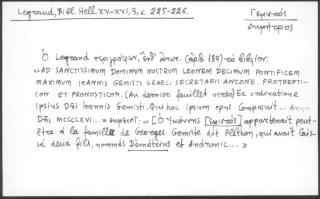 Legrand, Bibl. Hell. XV-XVI, 3, σ. 225-226.
Γεμιστός
Δημήτριος
Ὁ Legrand περιγράφων, ὑπ' ἀριθ. (189) τό βιβλίον:
«AD SANCTISSIMUM DOMINUM NOSTRUM LEONEM DECIMUM PONTIFICEM
MAXIMUM IOANNIS GEMISTI GRAECI SECRETARII ANCONE. PROTREPTI-
CON ET PRONOSTICON. (Au dernier feuillet verso) Ex ordinatione
ipsius Dñi Ioannis Gemisti. Qui hoc ipsum opus Composuit... Anno
Dñi MCCCCXVI...» σημειοῖ: «[Ὁ Ἰωάννης Γεμιστός] appartenait peut-
être à la famille de Georges Gemiste dit Pléthon, qui avait lais-
sé deux fils, nommés Démétrius et Andronic...»